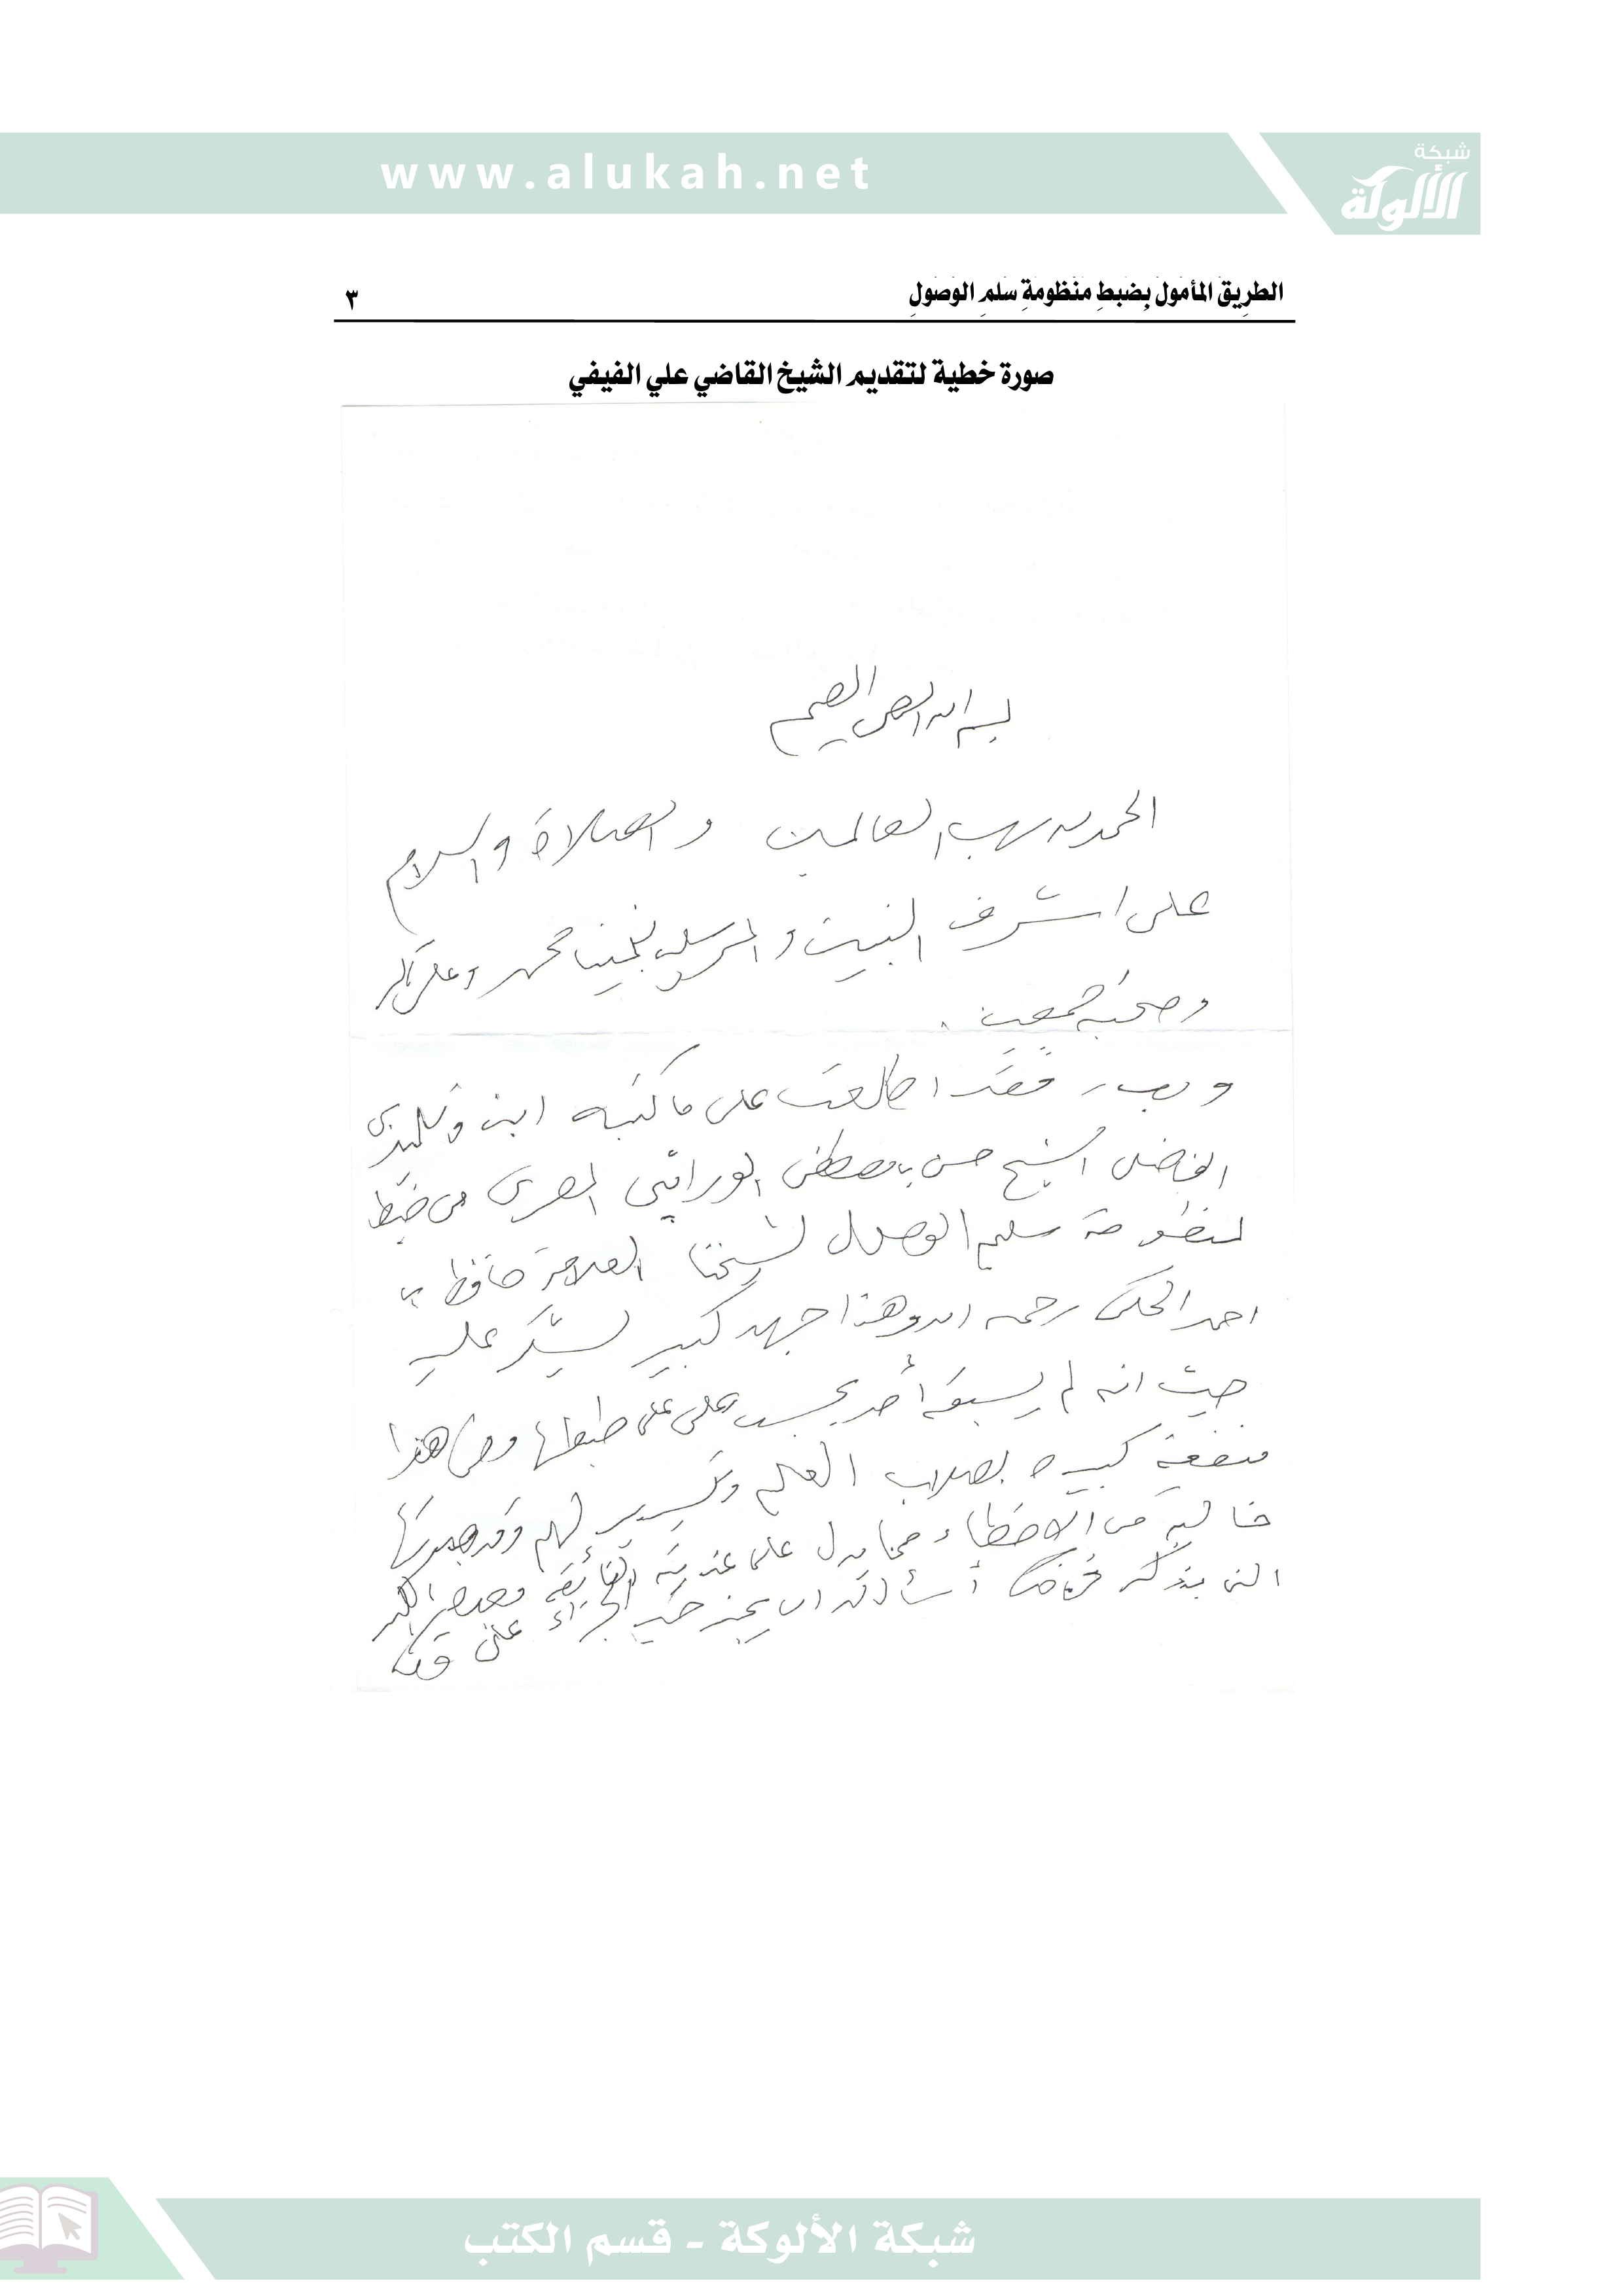 www.alukah.net
شبكة
الألوكة
الطريق المأمول بضبط منظومة سلم الوصول ٣
صورة خطية لتقديم الشيخ القاضي علي الفيفي
بسم الله الرحمن الرحيم
الحمد لله رب العالمين والصلاة والسلام
على اشرف النبيين والمرسلين نبينا محمد وعلى آله
وصحبه اجمعين .
وبعد فقد اطلعت على ما كتبه ابني وتلميذي
الفاضل الشيخ حسن بن مصطفى الوراقي المصري من ضبط
لمنظومة سلم الوصول لشيخنا العلامة حافظ بن
احمد الحكمي رحمه الله وهذا جهد كبير يشكر عليه
حيث انه لم يسبقه أحد بحسب علمي على طبعها وفي هذا
منفعة كبيره لطلاب العلم وتيسير لهم وقد وجدتها
خالية من الاخطاء مما يدل على عنايته الفائقة وحرصه الكبير
الذي يذكر أسأل الله ان يجزيه خير الجزاء على
شبكة الألوكة - قسم الكتب